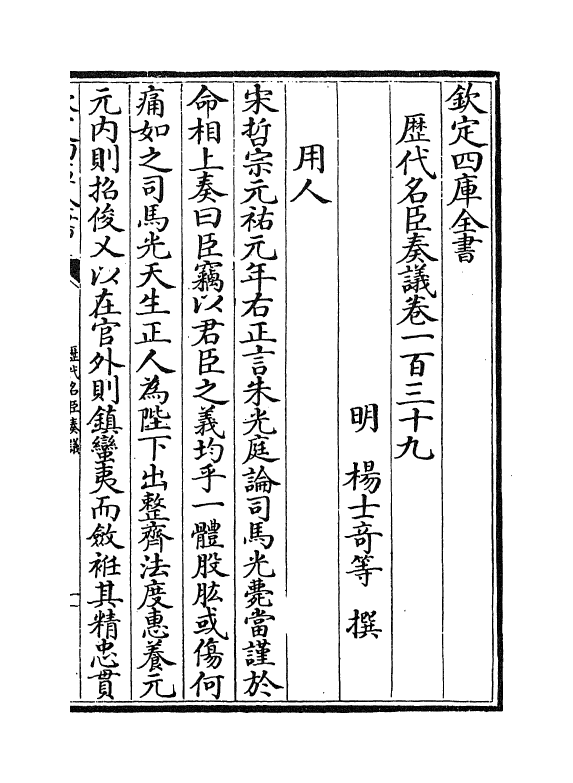 欽定四庫全書
歴代名臣奏議卷一百三十九
明 楊士竒等 撰
用人
宋哲宗元祐元年右正言朱光庭論司馬光薨當謹於
命相上奏曰臣竊以君臣之義均乎一體股肱或傷何
痛如之司馬光天生正人為陛下出整齊法度惠養元
元内則招俊乂以在官外則鎮蠻夷而斂袵其精忠貫
歴代名臣奏議